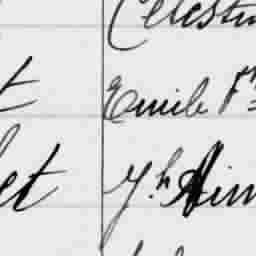 Célestin
t Emile Fr
et Jh Aim